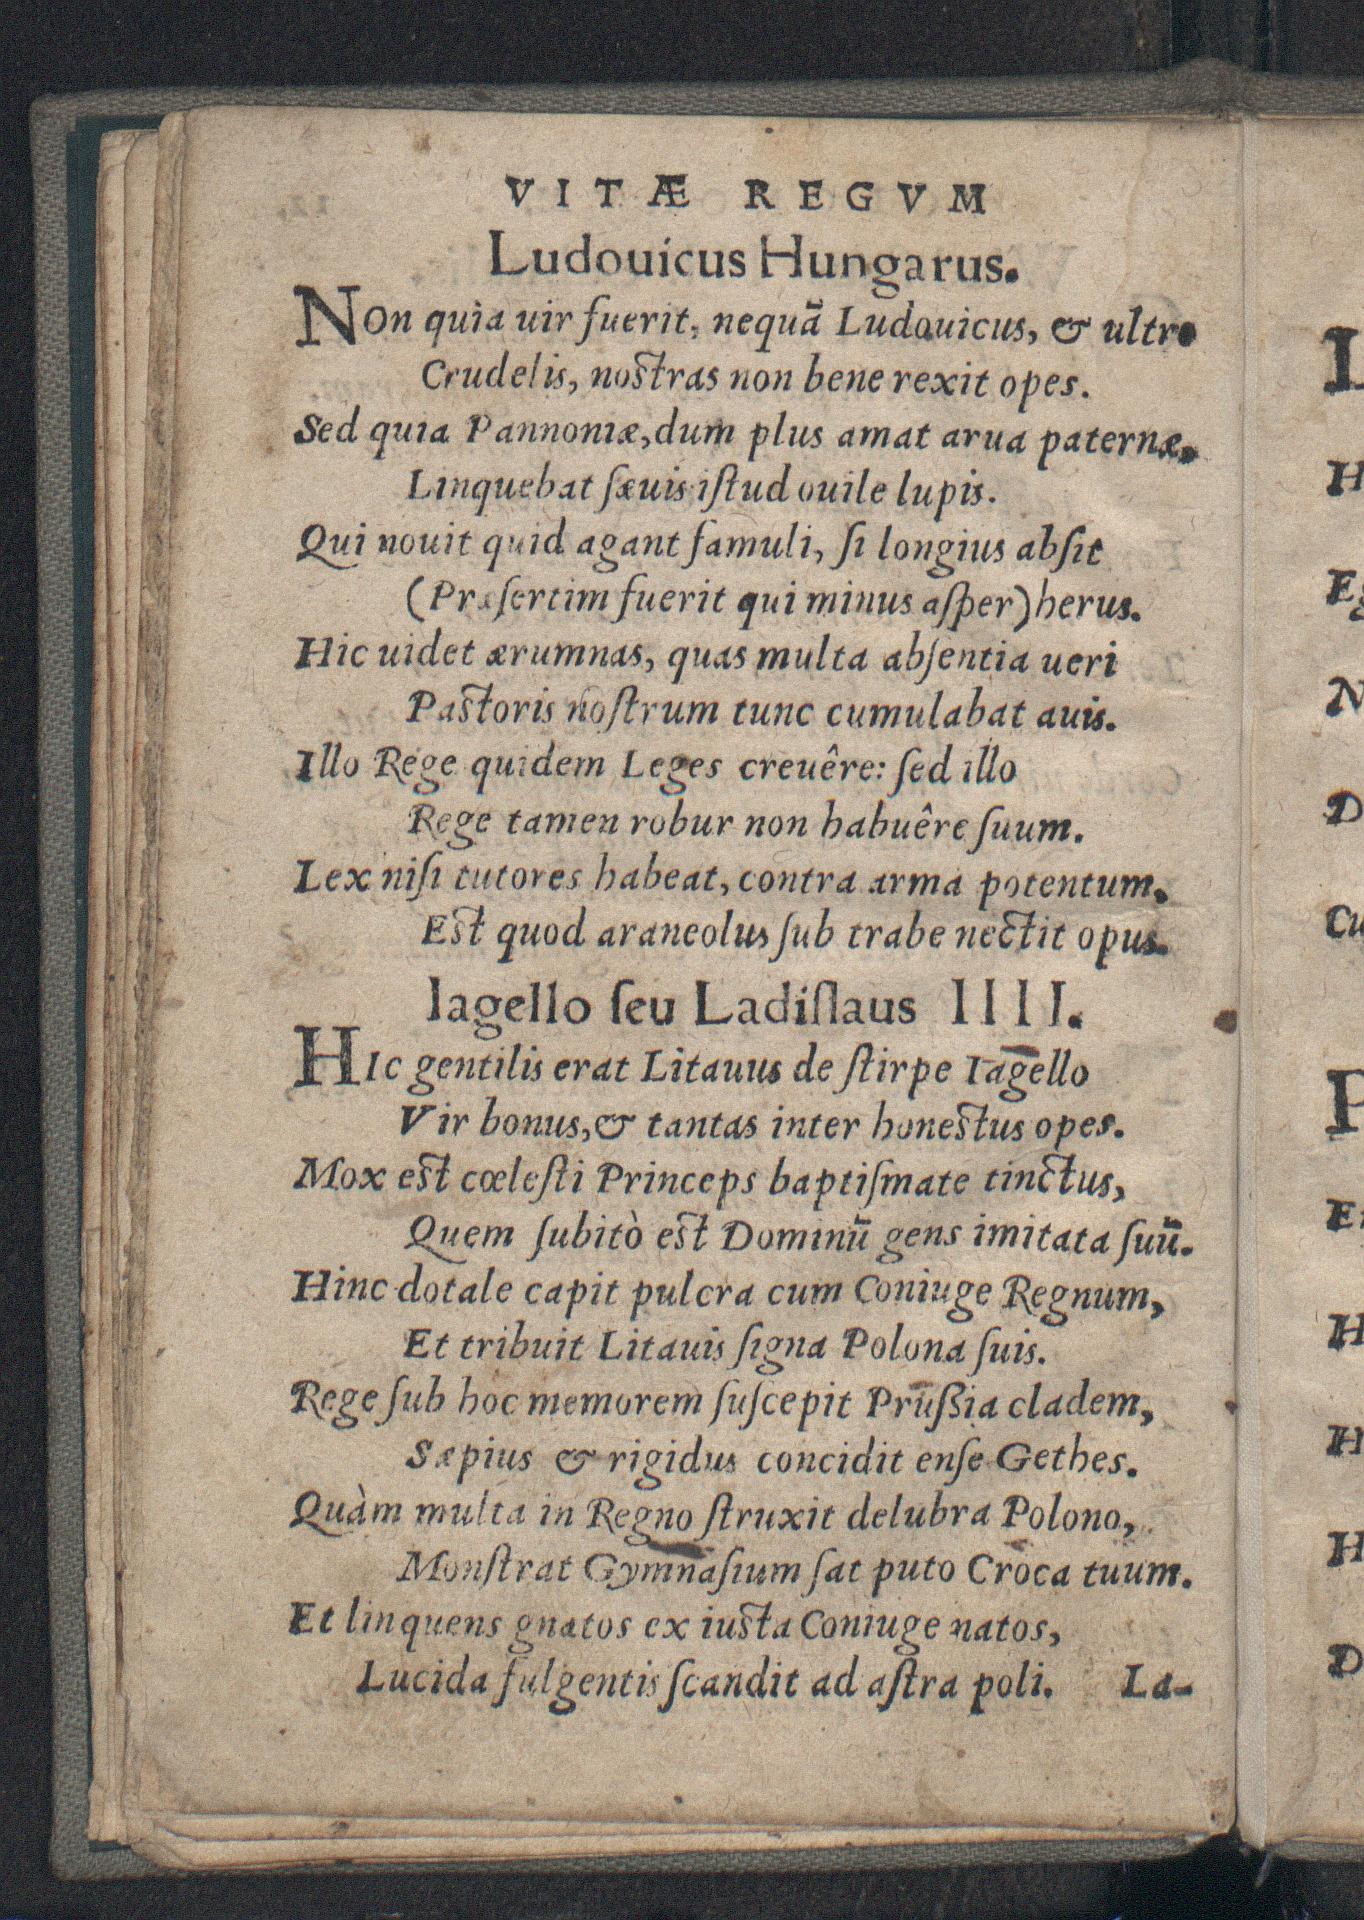 VITÆ REGVM
Ludouicus Hungarus.
NOn quia uir fuerit, nequã Ludouicus, & ultro
Crudelis, nostras non bene rexit opes.
Sed quia Pannoniæ, dum plus amat arua paternæ,
Linquebat sæuis istud ouile lupis.
Qui nouit quid agant famuli, si longius absit
(Præsertim fuerit qui minus asper) herus.
Hic uidet ærumnas, quas multa absentia ueri
Pastoris nostrum tunc cumulabat auis.
Illo Rege quidem Leges creuêre: sed illo
Rege tamen robur non habuêre suum.
Lex nisi tutores habeat, contra arma potentum,
Est quod araneolus sub trabe nectit opus.
Iagello seu Ladislaus IIII.
HIc gentilis erat Litauus de stirpe Iagello
Vir bonus, & tantas inter honestus opes.
Mox est cœlesti Princeps baptismate tinctus,
Quem subitò est Dominũ gens imitata suũ.
Hinc dotale capit pulcra cum Coniuge Regnum,
Et tribuit Litauis signa Polona suis.
Rege sub hoc memorem suscepit Prußia cladem,
Sæpius & rigidus concidit ense Gethes.
Quàm multa in Regno struxit delubra Polono,
Monstrat Gymnasium sat puto Croca tuum.
Et linquens gnatos ex iusta Coniuge natos,
Lucida fulgentis scandit ad astra poli. La-